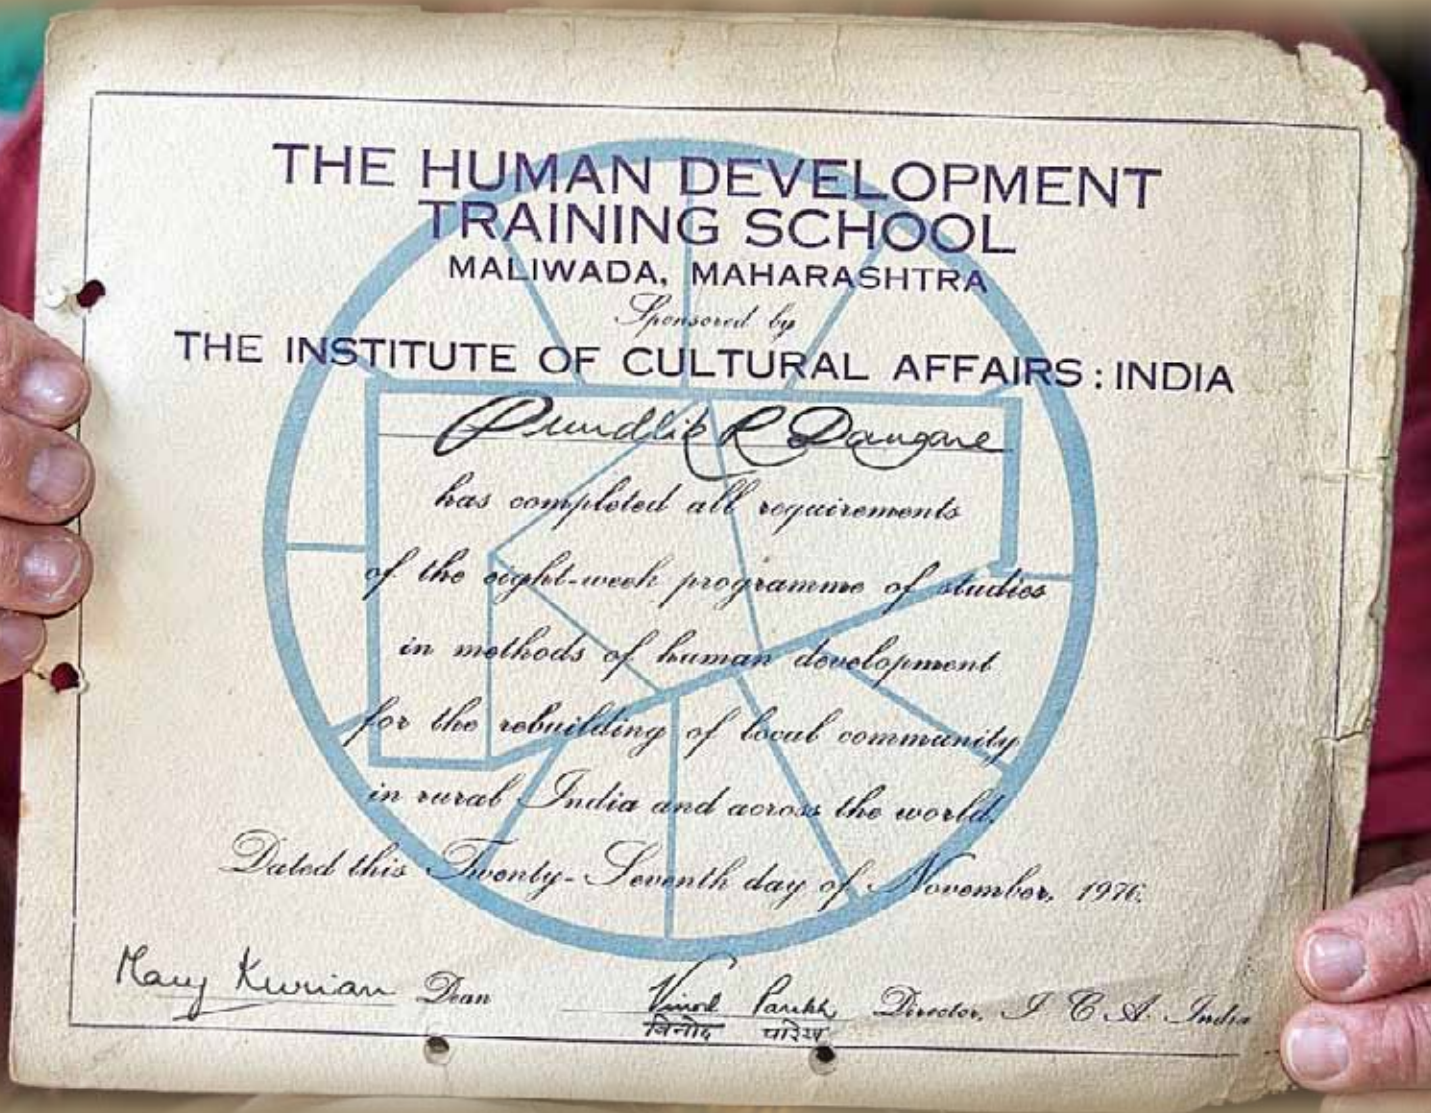 THE HUMAN DEVELOPMENT
TRAINING SCHOOL
MALIWADA, MAHARASHTRA
Sponsored by
THE INSTITUTE OF CULTURAL AFFAIRS : INDIA
Pundlik R Dangare
has completed all requirements
of the eight-week programme of studies
in methods of human development
for the rebuilding of local community
in rural India and across the world.
Dated this Twenty-Seventh day of November, 1976.
Mary Kurian Dean Vinod Parikh Director, I C A India
विनोद पारेख